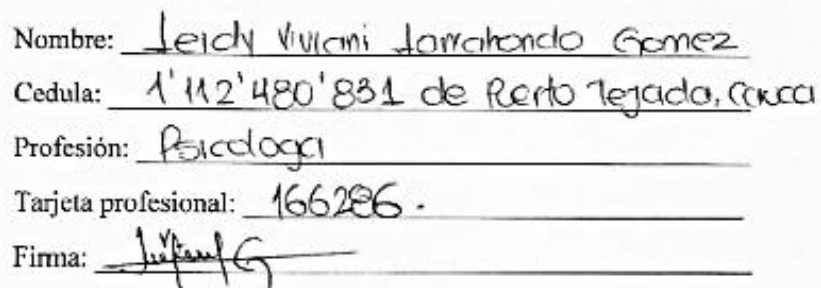 Nombre: Leidy Viviani Larrahondo Gomez
Cedula: 1'112'480'831 de Puerto Tejada, Cauca
Profesión: Psicologa
Tarjeta profesional: 166286.
Firma: